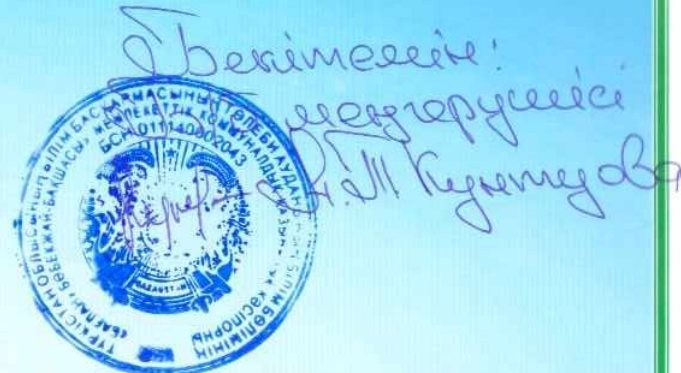 Бекітемін:
меңгерушісі
Кунтуова
ТҮРКІСТАН ОБЛЫСЫНЫҢ БІЛІМ БАСҚАРМАСЫНЫҢ ТӨЛЕБИ АУДАНЫНЫҢ БІЛІМ БӨЛІМІНІҢ
БӨБЕКЖАЙ-БАҚШАСЫ МЕМЛЕКЕТТІК КОММУНАЛДЫҚ ҚАЗЫНАЛЫҚ КӘСІПОРНЫ
БСН 011140002043